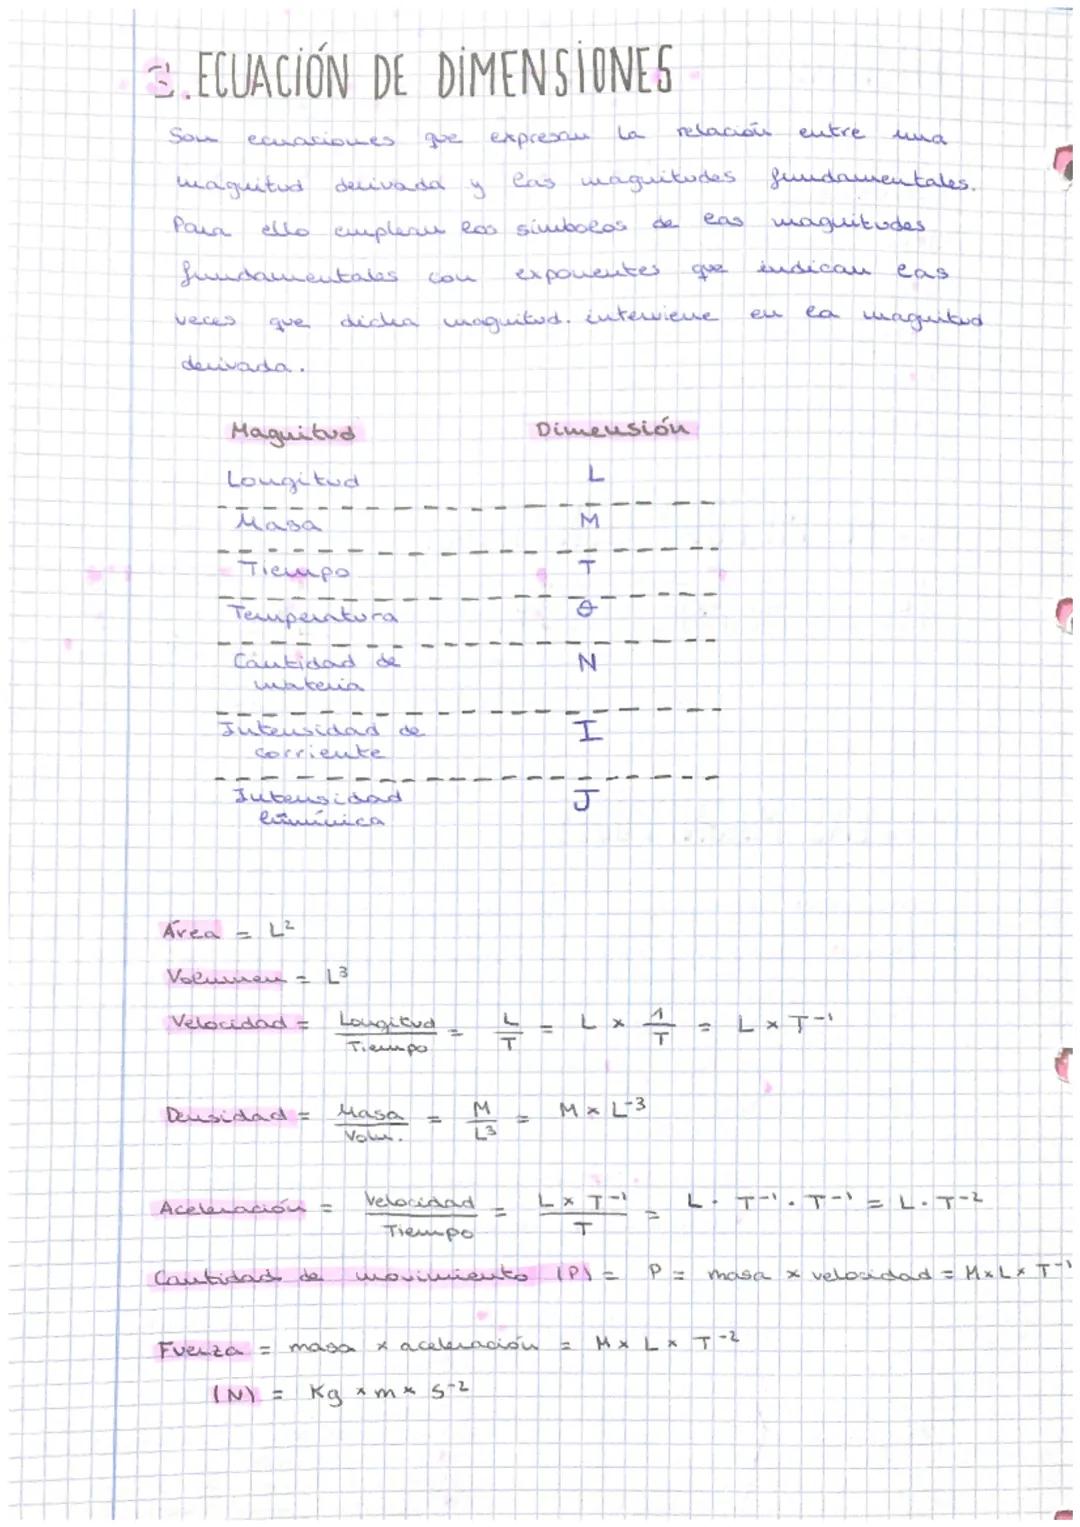 3. ECUACIÓN DE DIMENSIONES
Son ecuaciones que expresan la relación entre una
magnitud derivada y las magnitudes fundamentales.
Para ello emplean los símbolos de las magnitudes
fundamentales con exponentes que indican las
veces que dicha magnitud. interviene en la magnitud
derivada.
Magnitud Dimensión
Longitud L
Masa M
Tiempo T
Temperatura θ
Cantidad de N
materia
Intensidad de I
corriente
Intensidad J
lumínica
Área = L²
Volumen = L³
Velocidad = Longitud/Tiempo = L/T = L × 1/T = L × T⁻¹
Densidad = Masa/Volm. = M/L³ = M × L⁻³
Aceleración = Velocidad/Tiempo = L × T⁻¹/T = L · T⁻¹ · T⁻¹ = L · T⁻²
Cantidad de movimiento (P) = P = masa × velocidad = M × L × T⁻¹
Fuerza = masa × aceleración = M × L × T⁻²
(N) = Kg × m × s⁻²